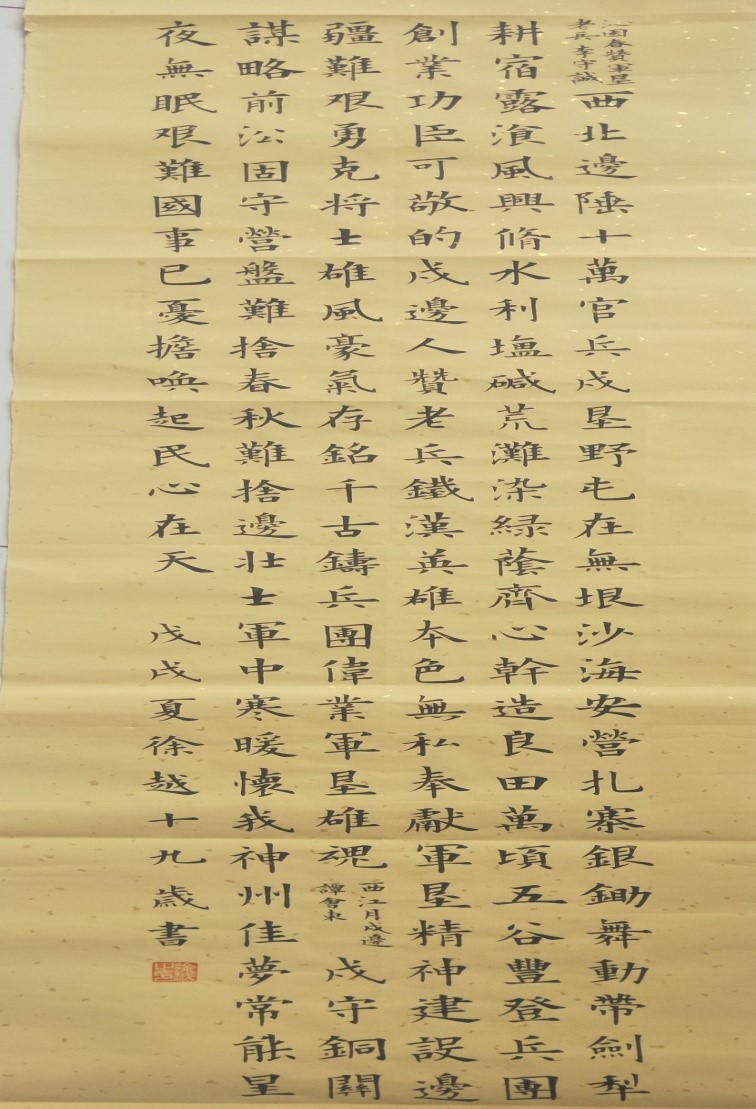 沁园春赞軍垦
老兵 李守誠
西北邊陲十萬官兵戍垦野屯在無垠沙海安營扎寨銀鋤舞動帶劍犁
耕宿露飡風興脩水利塩碱荒灘染緑蔭齊心幹造良田萬頃五谷豐登兵團
創業功臣可敬的戍邊人贊老兵鐵漢英雄本色無私奉獻軍垦精神建設邊
疆難艰勇克将士雄風豪氣存銘千古鑄兵團偉業軍垦雄魂
西江月戍邊
譚會東
戍守銅關
謀略前沿固守營盤難捨春秋難捨邊壯士軍中寒暖懷我神州佳夢常能星
夜無眠艰難國事已憂擔喚起民心在天 戊戌夏徐越十九歲書